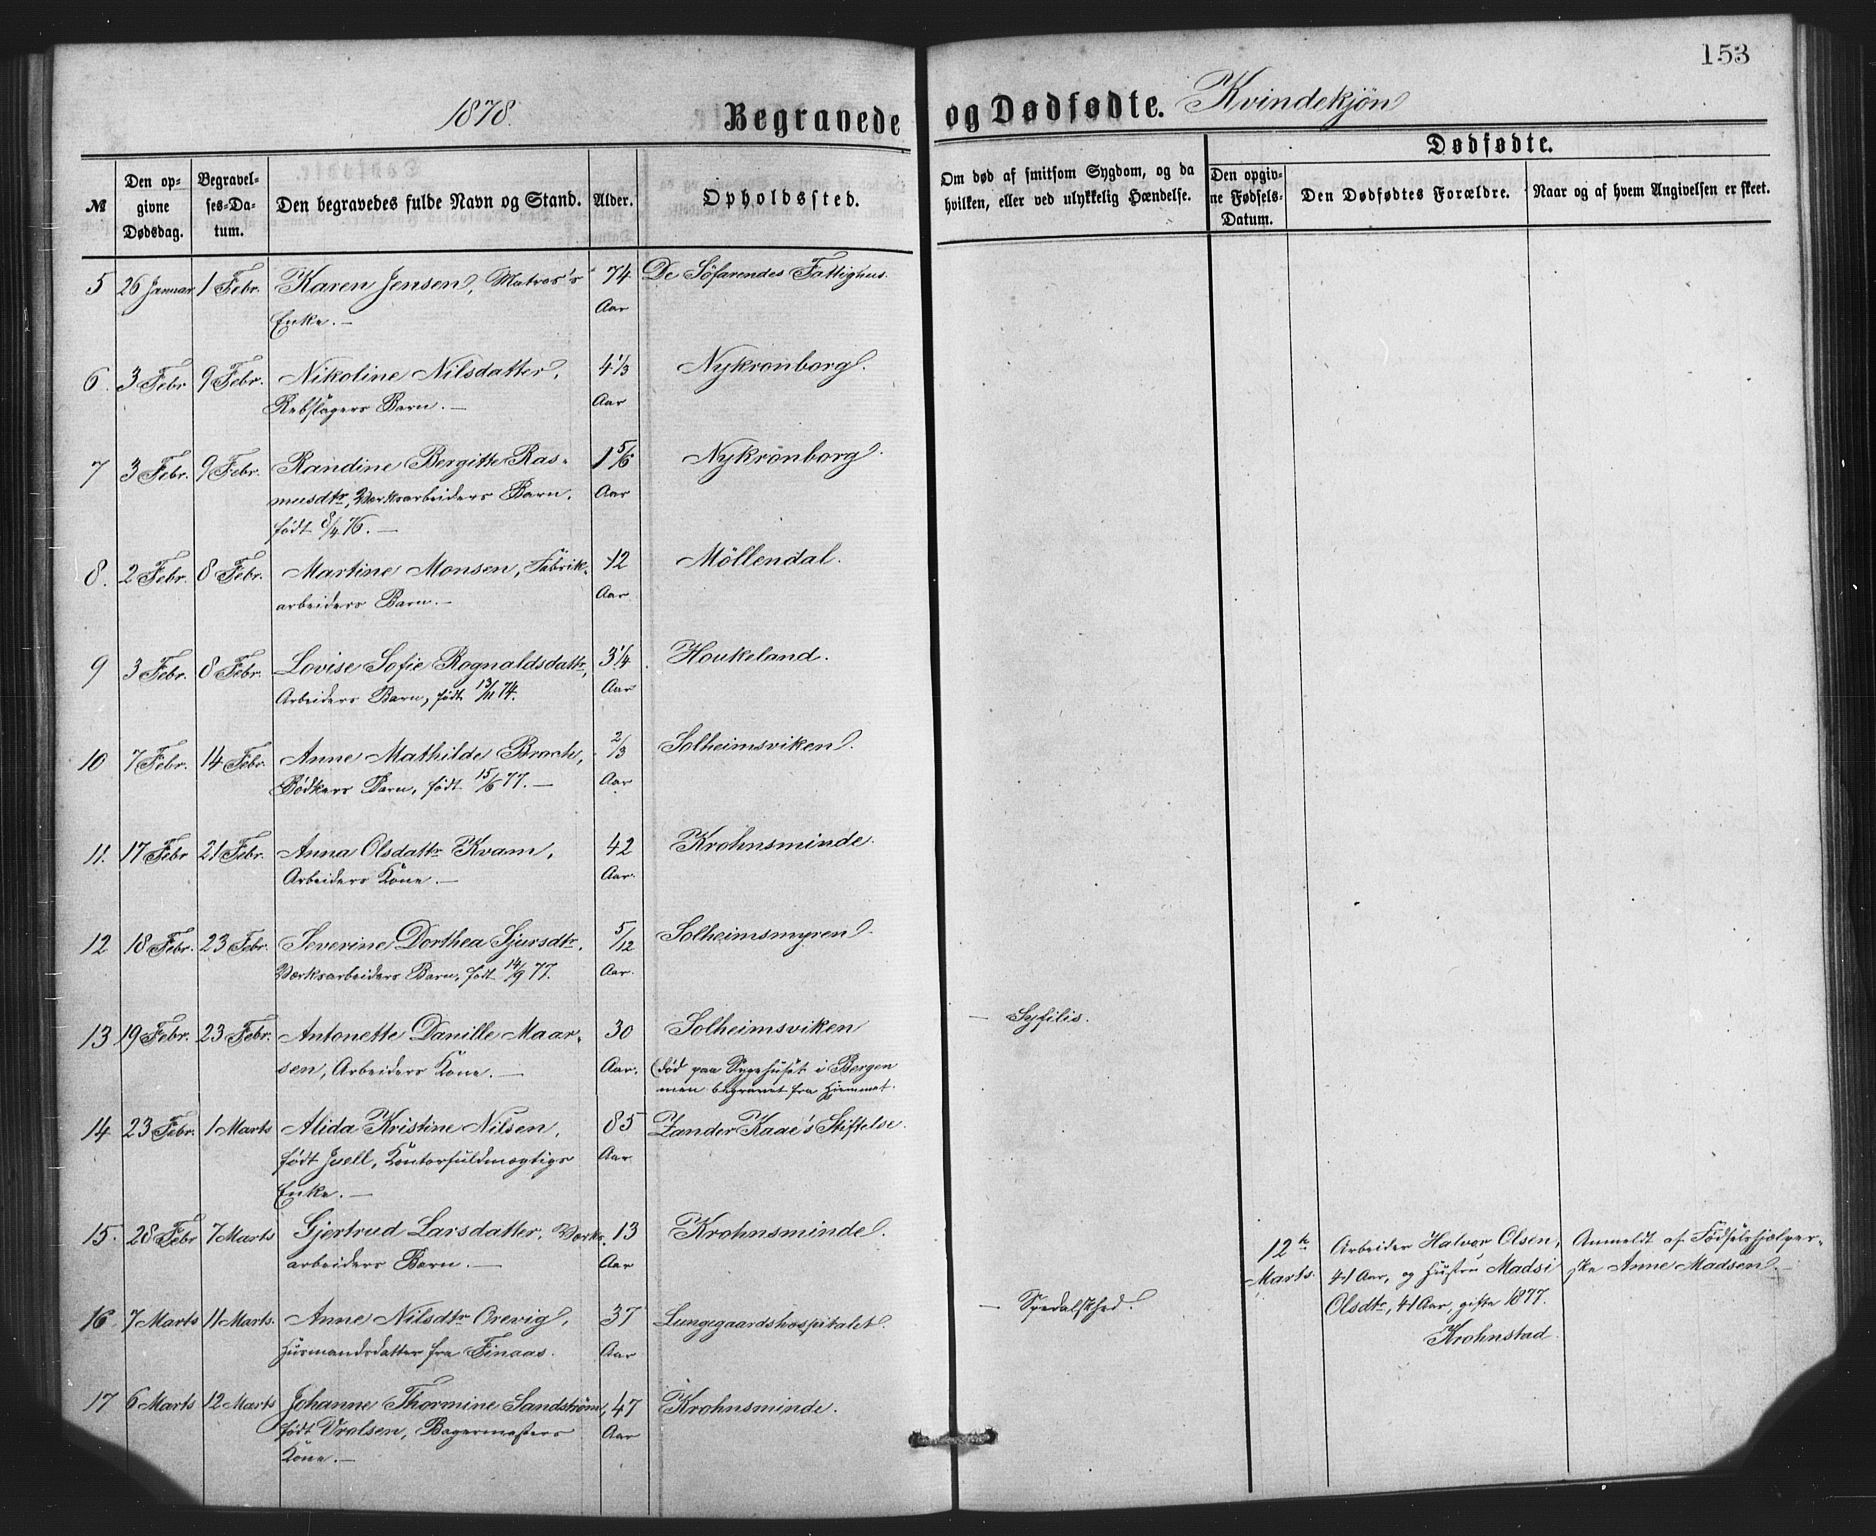 153
1878. Begravede og Dødfødte. Kvindekjön
№
Den opgivne Dødsdag.
Begravelses-Datum.
Den begravedes fulde Navn og Stand.
Alder.
Opholdssted.
Om død af smitsom Sygdom, og da hvilken, eller ved ulykkelig Hændelse.
Dødfødte.
Den opgivne Fødsels-Datum.
Den Dødfødtes Forældre.
Naar og af hvem Angivelsen er skeet.
5 26 Januar 1 Febr. Karen Jensen, Matros's 74 De Söfarendes Fattighus.
Enke. — Aar
6. 3 Febr 9 Febr. Nikoline Nilsdatter, 4 1/3 Nykronborg.
Rebslagers Barn. — Aar
7 3 Febr. 9 Febr. Randine Bergitte Ras- 1 5/6 Nykronborg.
musdtr, Værksarbeiders Barn, Aar
født 8/4 76. —
8. 2 Febr. 8 Febr. Martine Monsen, Fabrik- 12 Möllendal.
arbeiders Barn. — Aar
9 3 Febr. 8 Febr. Lovise Sofie Rognaldsdattr, 3 1/4 Houkeland.
Arbeiders Barn, født 13/11 74. Aar
10 7 Febr. 14 Febr. Anne Mathilde Broch, 2/3 Solheimsviken.
Bødkers Barn, født 15/6 77. — Aar
11. 17 Febr 21 Febr. Anna Olsdattr Kvam, 42 Krohnsminde.
Arbeiders Kone. — Aar.
12 18 Febr. 23 Febr. Severine Dorthea Sjursdtr. 5/12 Solheimsmyren.
Værksarbeiders Barn, født 14/9 77. Aar.
13 19 Febr. 23 Febr. Antonette Danille Maar- 30 Solheimsviken — Syfilis.
sen, Arbeiders Kone. — Aar. (død paa Sygehuset i Bergen
men begravet fra Hjemmet.
14 23 Febr. 1 Marts Alida Kristine Nilsen, 85 Zander Kaae's Stiftelse.
født Juell, Kontorfuldmægtigs Aar
Enke. —
15. 28 Febr 7 Marts Gjertrud Larsdatter, Værks- 13 Krohnsminde.
arbeiders Barn. — Aar
12te Marts. Arbeider Halvor Olsen, Anmeldt af Fødselshjælper-
41 Aar, og Hustru Madsi ske Anne Madsen. —
Olsdtr, 41 Aar, gifte 1877.
Krohnstad.
16. 7 Marts 11 Marts. Anne Nilsdtr Orevig, 37 Lungegaardshospitalet. — Spedalskhed.
Husmandsdatter fra Finaas. Aar
17 6 Marts 12 Marts Johanne Thormine Sandstrøm, 47 Krohnsminde.
født Vrolsen, Bagermesters Aar
Kone. —